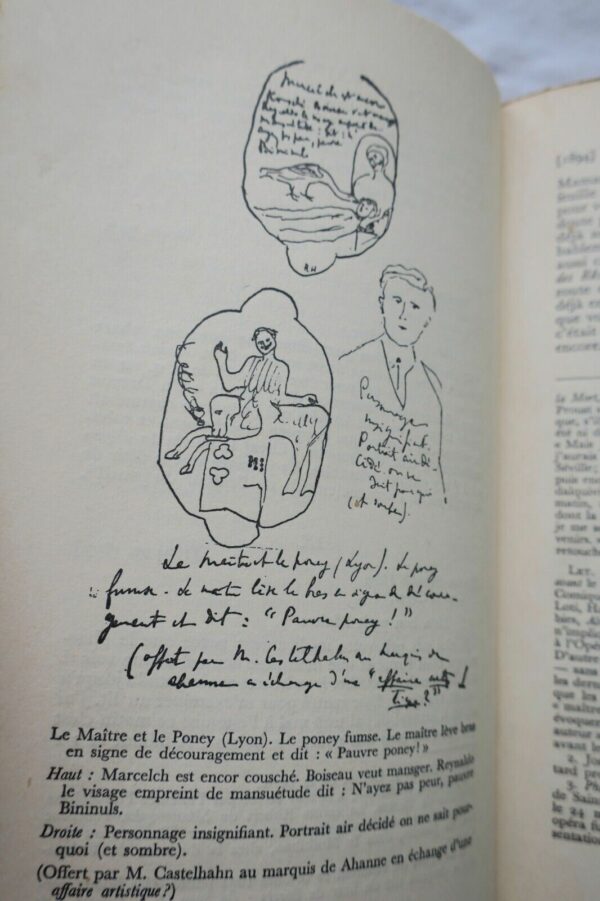 Marcelch est encor
Boiseau veut
N'ayez pas peur, pauvre
Bininuls
RH
Personnage
insignifiant.
Portrait air dé-
cidé on ne
sait pourquoi
(et sombre).
Le Maître et le poney (Lyon). Le poney
fumse. Le maître lève le bras en signe de découra-
gement et dit : "Pauvre poney !"
(offert par M. Castelhahn au marquis de
Ahanne en échange d'une "affaire artis
tique ?")
Le Maître et le Poney (Lyon). Le poney fumse. Le maître lève bras
en signe de découragement et dit : « Pauvre poney! »
Haut : Marcelch est encor cousché. Boiseau veut mansger. Reynaldo
le visage empreint de mansuétude dit : N'ayez pas peur, pauvre
Bininuls.
Droite : Personnage insignifiant. Portrait air décidé on ne sait pour-
quoi (et sombre).
(Offert par M. Castelhahn au marquis de Ahanne en échange d'une
affaire artistique?)
feuille
pour v
aussi c
des Rê
route
déjà re
que vo
c'était
encore.
la Mort,
Proust
que, s'é
été ni d
« Mais
j'aurais
Séville;
puis enc
dalquivi
matin,
dont la
je me s
venirs.
retouche
LET.
avant le
Comiqu
Loti, Ha
n'impliq
à l'Opé
D'autre
les dern
que les
« maître
évoquer
auteur »
avant le
2. Jou
tard pro
3. Ph
de Sain
le 24
opéra fu
sentation